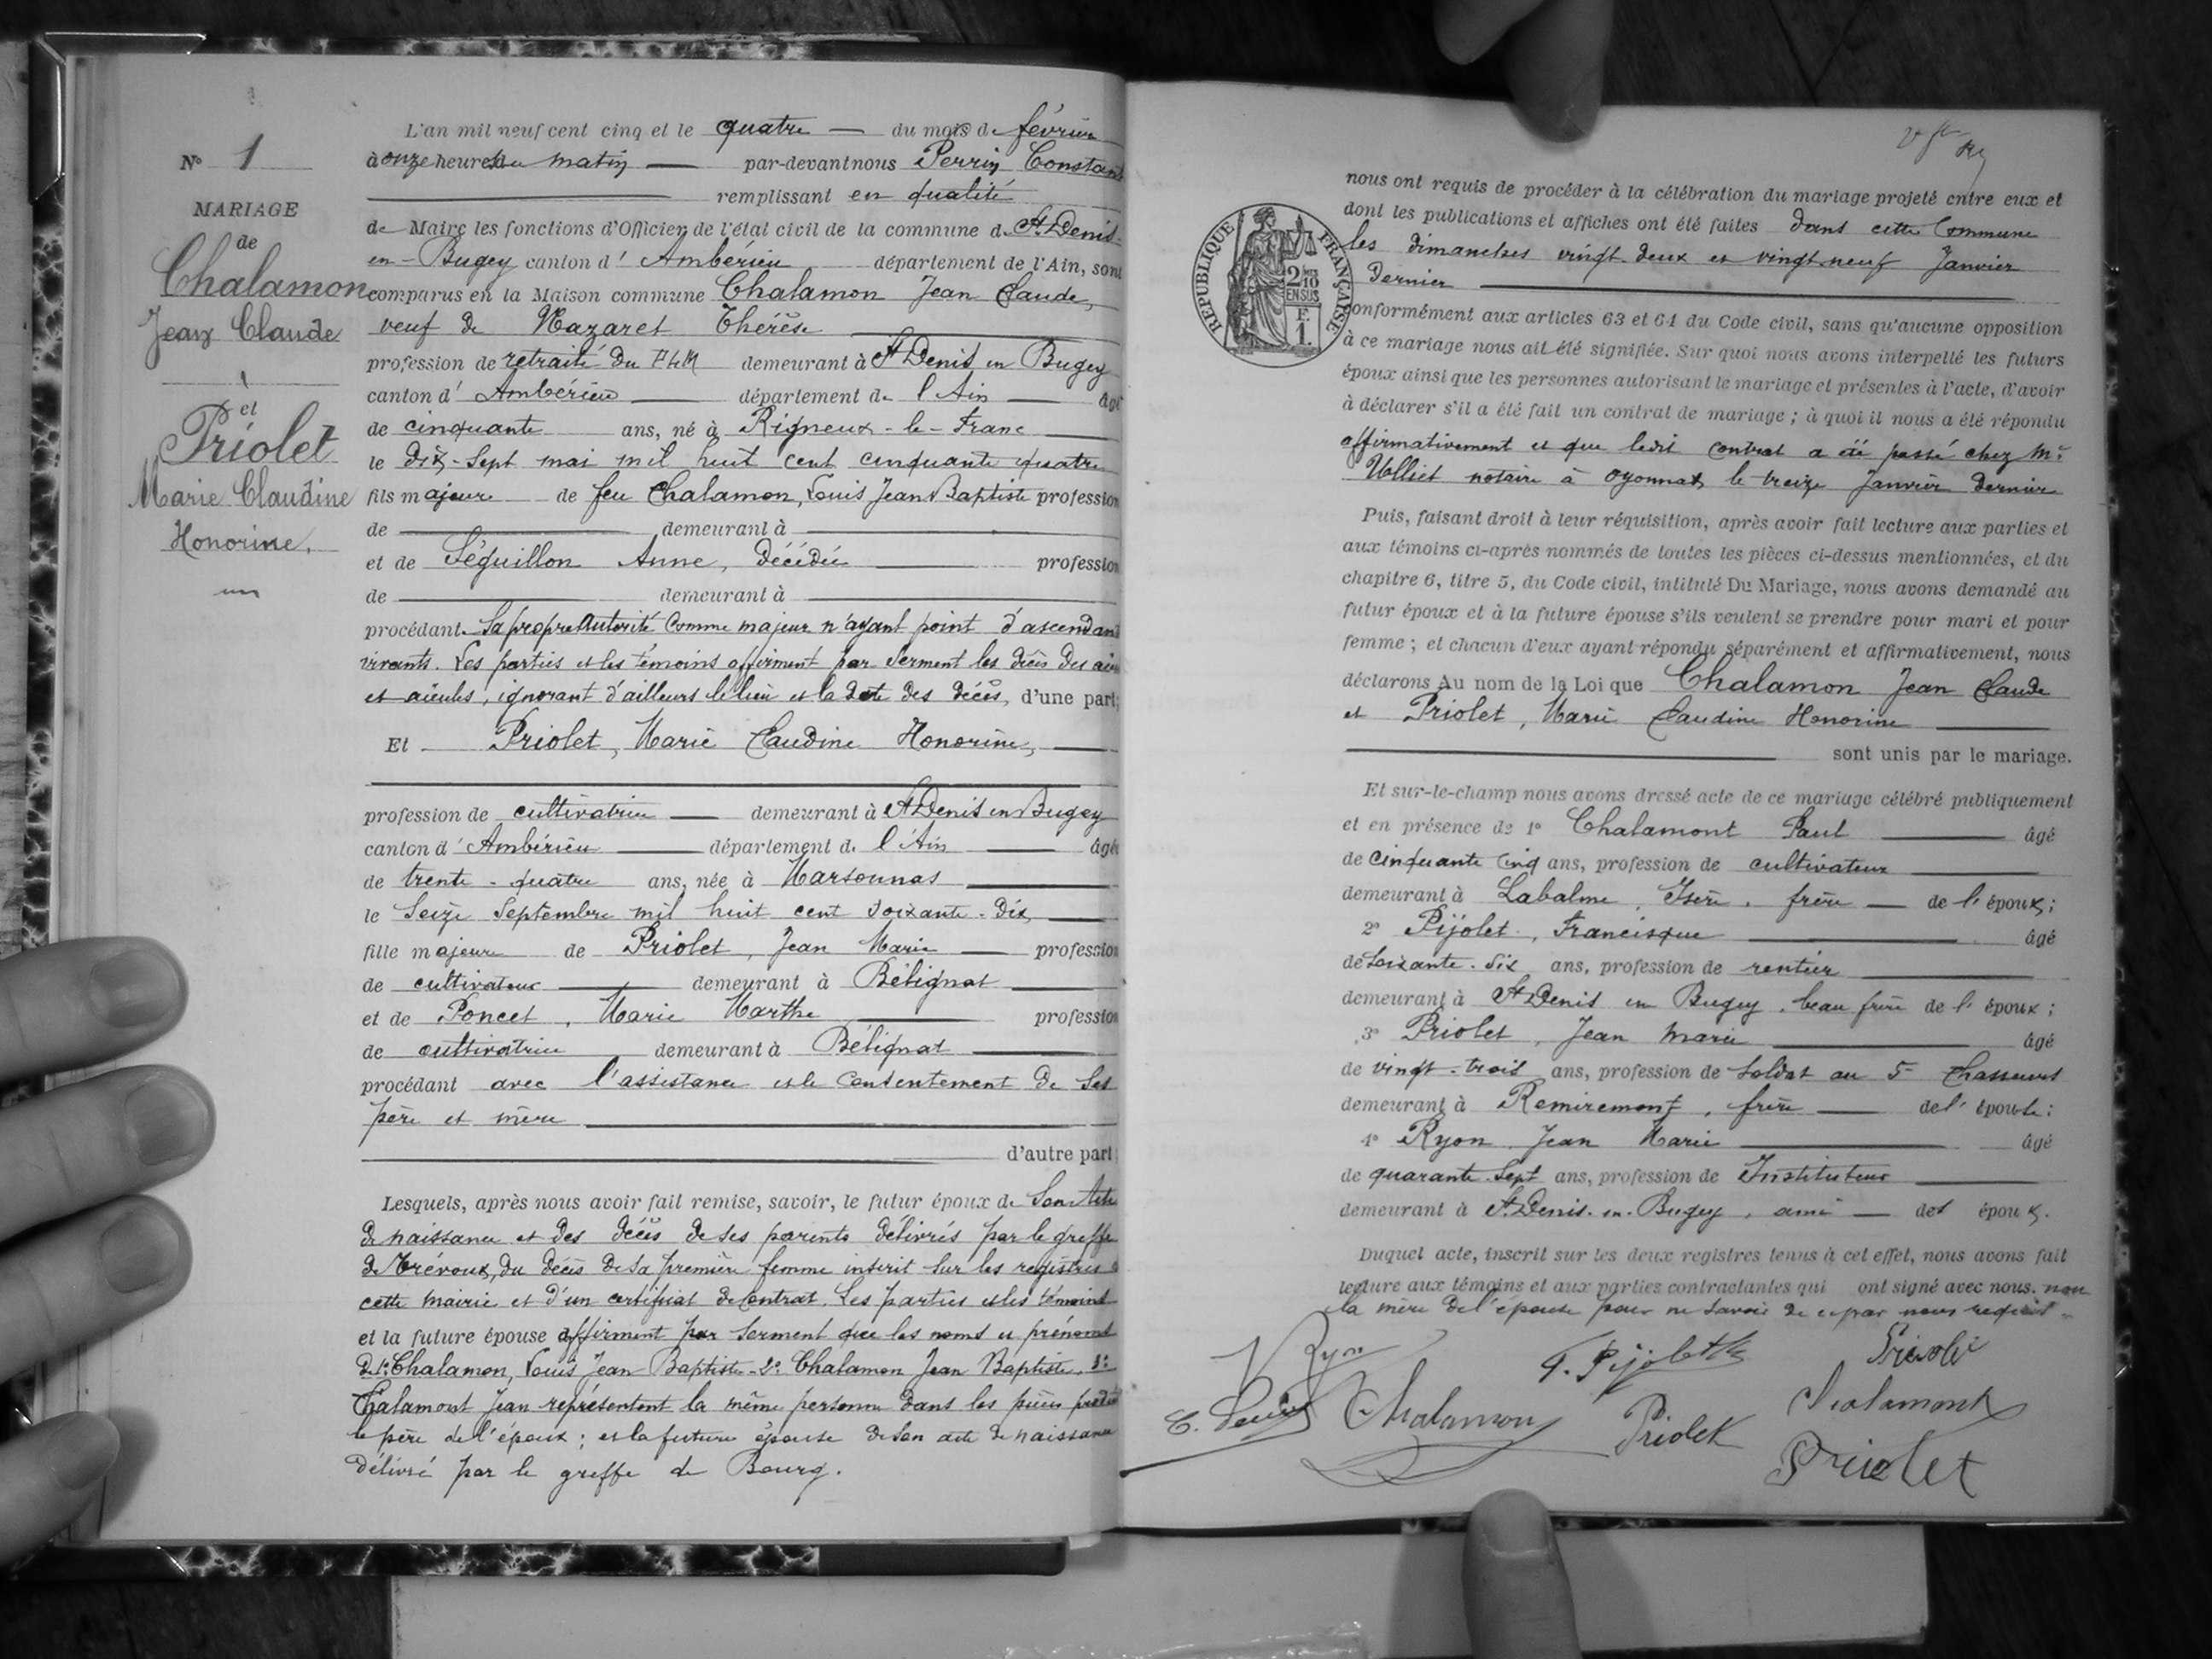 N° 1
MARIAGE
de
Chalamon
Jean Claude
et
Priolet
Marie Claudine
Honorine.
L'an mil neuf cent cinq et le quatre du mois de février
à onze heures du matin par-devant nous Perrin Constant
remplissant en qualité
de Maire les fonctions d'Officier de l'état civil de la commune de St Denis-
en-Bugey canton d'Ambérieu département de l'Ain, sont
comparus en la Maison commune Chalamon Jean Claude,
veuf de Nazaret Thérèse
profession de retraité du PLM demeurant à St Denis en Bugey
canton d'Ambérieu département de l'Ain âgé
de cinquante ans, né à Rigneux-le-Franc
le dix-sept mai mil huit cent cinquante quatre
fils majeur de feu Chalamon, Louis Jean Baptiste profession
de demeurant à
et de Séquillon Anne, décédée profession
de demeurant à
procédant Sa propre autorité comme majeur n'ayant point d'ascendant
vivants. Les parties et les témoins affirment par serment les décès des aïeu
et aïeules, ignorant d'ailleurs le lieu et la date des décès, d'une part;
Et Priolet, Marie Claudine Honorine,
profession de cultivatrice demeurant à St Denis en Bugey
canton d'Ambérieu département de l'Ain âgée
de trente-quatre ans, née à Marsonnas
le Seize Septembre mil huit cent soixante-dix,
fille majeure de Priolet, Jean Marie profession
de cultivateur demeurant à Bélignat
et de Poncet, Marie Marthe profession
de cultivatrice demeurant à Bélignat
procédant avec l'assistance et le consentement de ses
père et mère
d'autre part
Lesquels, après nous avoir fait remise, savoir, le futur époux de Son acte
de naissance et des décès de ses parents délivrés par le greffe
de Trévoux, du décès de sa première femme inscrit sur les registres de
cette mairie et d'un certificat de contrat. Les parties et les témoins
et la future épouse affirment par serment que les noms et prénoms
de 1° Chalamon, Louis Jean Baptiste - 2° Chalamon Jean Baptiste, 3°
Chalamont Jean représentent la même personne dans les pièces
le père de l'époux; et la future épouse de son acte de naissance
délivré par le greffe de Bourg.
REPUBLIQUE FRANÇAISE
2/10 EN SUS
F. 1.
nous ont requis de procéder à la célébration du mariage projeté entre eux et
dont les publications et affiches ont été faites dans cette Commune
les dimanches vingt deux et vingt neuf Janvier
Dernier
conformément aux articles 63 et 64 du Code civil, sans qu'aucune opposition
à ce mariage nous ait été signifiée. Sur quoi nous avons interpellé les futurs
époux ainsi que les personnes autorisant le mariage et présentes à l'acte, d'avoir
à déclarer s'il a été fait un contrat de mariage; à quoi il nous a été répondu
affirmativement et que ledit contrat a été passé chez Me
Volliet notaire à Oyonnax, le treize Janvier dernier
Puis, faisant droit à leur réquisition, après avoir fait lecture aux parties et
aux témoins ci-après nommés de toutes les pièces ci-dessus mentionnées, et du
chapitre 6, titre 5, du Code civil, intitulé Du Mariage, nous avons demandé au
futur époux et à la future épouse s'ils veulent se prendre pour mari et pour
femme; et chacun d'eux ayant répondu séparément et affirmativement, nous
déclarons Au nom de la Loi que Chalamon Jean Claude
et Priolet, Marie Claudine Honorine
sont unis par le mariage.
Et sur-le-champ nous avons dressé acte de ce mariage célébré publiquement
et en présence de 1° Chalamont Paul âgé
de cinquante cinq ans, profession de cultivateur
demeurant à Labalme, Isère, frère de l'époux;
2° Pijolet, Francisque âgé
de soixante-six ans, profession de rentier
demeurant à St Denis en Bugey, beau frère de l'époux;
3° Priolet, Jean Marie âgé
de vingt-trois ans, profession de soldat au 5e Chasseurs
demeurant à Remiremont, frère de l'épouse;
4° Ryon Jean Marie âgé
de quarante-sept ans, profession de Instituteur
demeurant à St Denis-en-Bugey, ami des époux.
Duquel acte, inscrit sur les deux registres tenus à cet effet, nous avons fait
lecture aux témoins et aux parties contractantes qui ont signé avec nous. non
la mère de l'épouse pour ne savoir de ce par nous requise
Ryon
F. Pijolet
Priolet
Chalamon
Priolet
Chalamont
Priolet